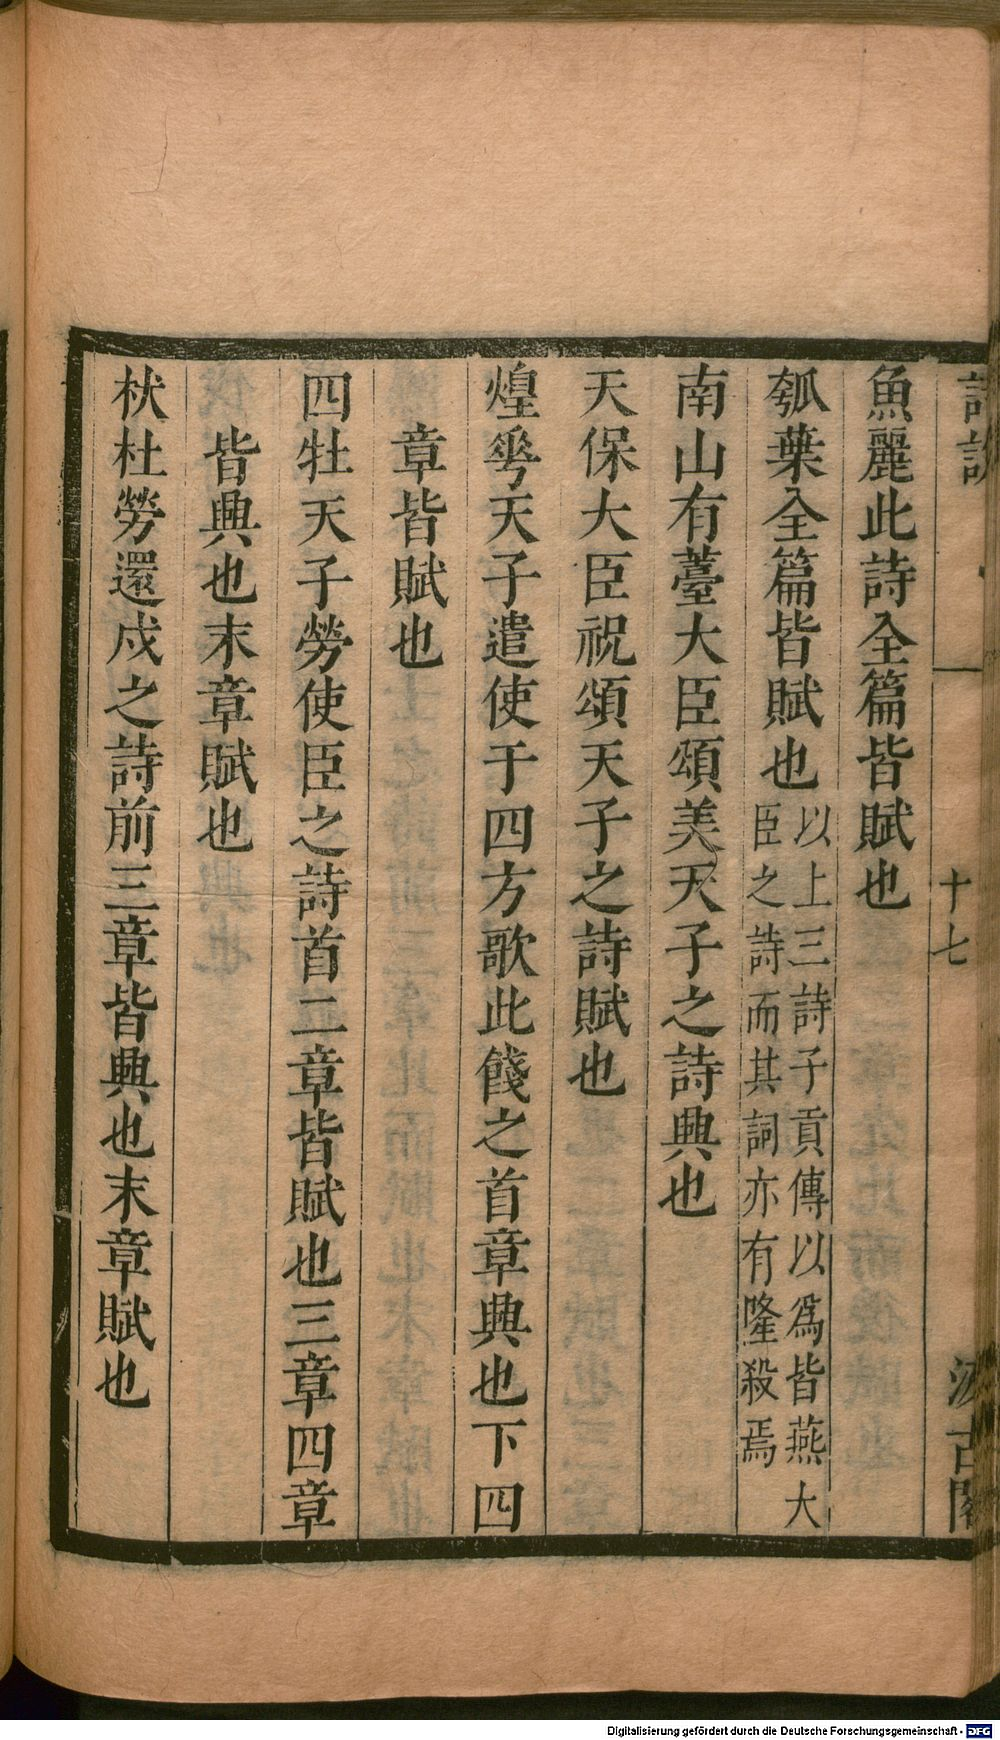 詩說
十七
汲古閣
魚麗此詩全篇皆賦也
瓠葉全篇皆賦也以上三詩子貢傳以爲皆燕大
臣之詩而其詞亦有隆殺焉
南山有薹大臣頌美天子之詩興也
天保大臣祝頌天子之詩賦也
煌華天子遣使于四方歌此餞之首章興也下四
章皆賦也
四牡天子勞使臣之詩首二章皆賦也三章四章
皆興也末章賦也
杕杜勞還戍之詩前三章皆興也末章賦也
Digitalisierung gefördert durch die Deutsche Forschungsgemeinschaft - DFG